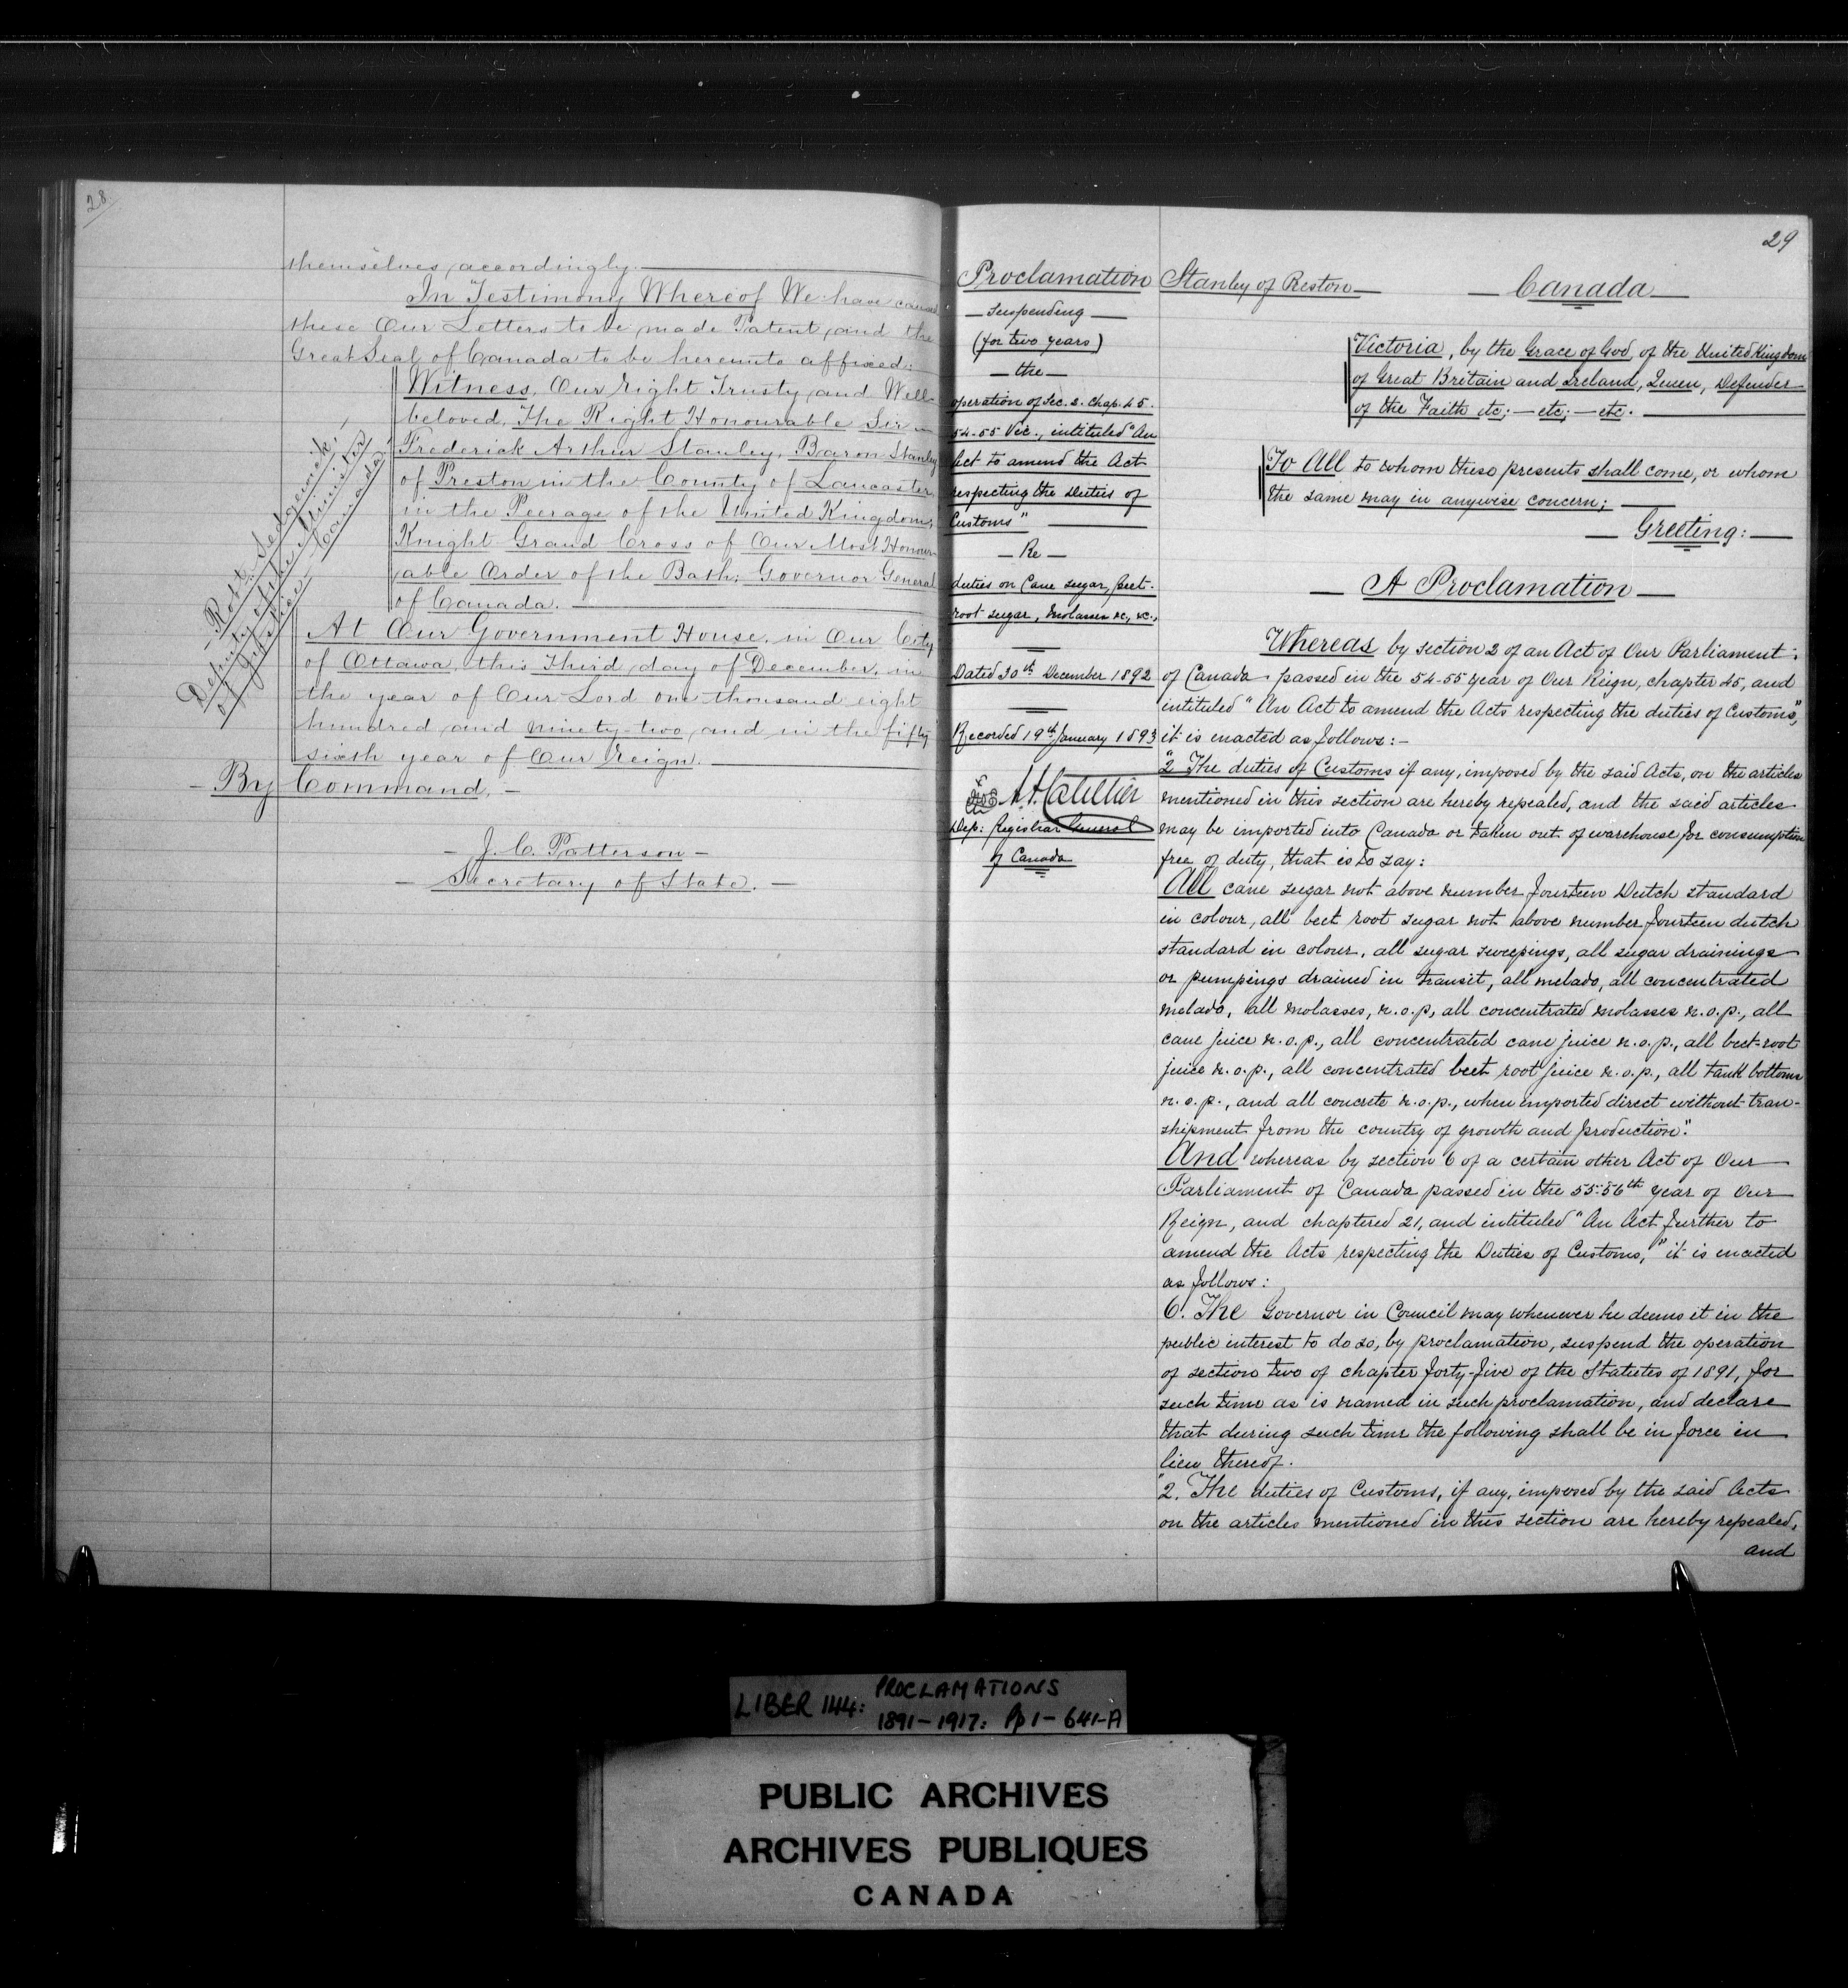 28
themselves accordingly.
In Testimony Whereof We have caused
these Our Letters to be made Patent and the
Great Seal of Canada to be hereunto affixed:
Witness, Our Right Trusty and Well-
beloved, The Right Honourable Sir
Frederick Arthur Stanley, Baron Stanley
of Preston in the County of Lancaster
in the Peerage of the United Kingdom;
Knight Grand Cross of Our Most Honour-
able Order of the Bath; Governor General
of Canada.
At Our Government House, in Our City
of Ottawa, this Third day of December, in
the year of Our Lord one thousand eight
hundred and ninety-two and in the fifty
sixth year of Our Reign.
By Command,
J. C. Patterson
Secretary of State.
Robt. Sedgewick,
Deputy of the Minister
of Justice, Canada
29
Proclamation
Suspending
(for two years)
the
operation of Sec. 2. Chap. 45.
54-55 Vic., intituled "An
Act to amend the Act
respecting the Duties of
Customs"
Re
duties on Cane sugar, beet-
root sugar, Molasses &c., &c.,
Dated 30th December 1892
Recorded 19th January 1893
Dep: Registrar General
of Canada
Stanley of Preston
Canada
Victoria, by the Grace of God, of the United Kingdom
of Great Britain and Ireland, Queen, Defender
of the Faith etc; — etc; — etc.
To All to whom these presents shall come, or whom
the same may in anywise concern;
Greeting:
A Proclamation
Whereas by section 2 of an Act of Our Parliament
of Canada passed in the 54-55 year of Our Reign, chapter 45, and
intituled "An Act to amend the Acts respecting the duties of Customs",
it is enacted as follows:-
"2 The duties of Customs if any, imposed by the said Acts, on the articles
mentioned in this section are hereby repealed, and the said articles
may be imported into Canada or taken out of warehouse for consumption
free of duty, that is to say:
All cane sugar not above number fourteen Dutch standard
in colour, all beet root sugar not above number fourteen dutch
standard in colour, all sugar sweepings, all sugar drainings
or pumpings drained in transit, all melado, all concentrated
melado, all molasses, n.o.p, all concentrated molasses n.o.p., all
cane juice n.o.p., all concentrated cane juice n.o.p., all beet-root
juice n.o.p., all concentrated beet root juice n.o.p., all tank bottoms
n.o.p., and all concrete n.o.p., when imported direct without tran-
shipment from the country of growth and production".
And whereas by section 6 of a certain other Act of Our
Parliament of Canada passed in the 55-56th year of Our
Reign, and chaptered 21, and intituled "An Act further to
amend the Acts respecting the Duties of Customs," it is enacted
as follows:
6. The Governor in Council may whenever he deems it in the
public interest to do so, by proclamation, suspend the operation
of section two of chapter forty-five of the Statutes of 1891, for
such time as is named in such proclamation, and declare
that during such time the following shall be in force in
lieu thereof.
"2. The duties of Customs, if any, imposed by the said Acts
on the articles mentioned in this section are hereby repealed,
and
LIBER 144: PROCLAMATIONS
1891-1917: Pp 1-641-A
PUBLIC ARCHIVES
ARCHIVES PUBLIQUES
CANADA